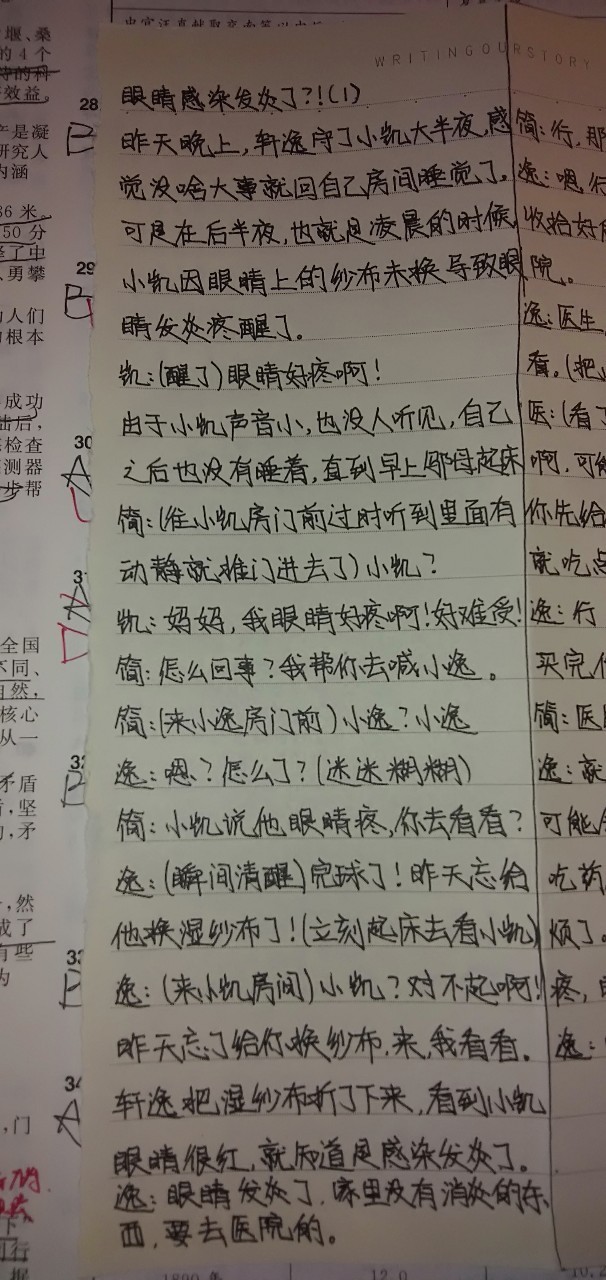 WRITINGOURSTORY
眼睛感染发炎了?!(1)
昨天晚上,轩逸守了小凯大半夜,感
觉没啥大事就回自己房间睡觉了。
可是在后半夜,也就是凌晨的时候,
小凯因眼睛上的纱布未换导致眼
睛发炎疼醒了。
凯:(醒了)眼睛好疼啊!
由于小凯声音小,也没人听见,自己
之后也没有睡着,直到早上邬母起床
简:(往小凯房门前过时听到里面有
动静就推门进去了)小凯?
凯:妈妈,我眼睛好疼啊!好难受!
简:怎么回事?我帮你去喊小逸。
简:(来小逸房门前)小逸?小逸
逸:嗯?怎么了?(迷迷糊糊)
简:小凯说他眼睛疼,你去看看?
逸:(瞬间清醒)完球了!昨天忘给
他换湿纱布了!(立刻起床去看小凯)
逸:(来小凯房间)小凯?对不起啊!
昨天忘了给你换纱布,来,我看看。
轩逸把湿纱布折了下来,看到小凯
眼睛很红,就知道是感染发炎了。
逸:眼睛发炎了,家里没有消炎的东
西,要去医院的。
简:行,那
逸:嗯,行
收拾好
院。
逸:医生
看。(把
医:(看了
啊,可能
你先给
就吃点
逸:行
买完
简:医
逸:就
可能
吃药
烦了。
疼,
逸:
28
29
30
31
32
33
34
B
B
A
A
B
B
A
堰、桑
的4个
效益。
产是凝
研究人
内涵
36米。
50分
怪了中
、勇攀
人们
根本
成功
陆后,
检查
测器
步帮
全国
不同、
自然,
核心
从一
矛盾
,坚
,矛
,然
成了
有些
为
,门
1890年
12.0